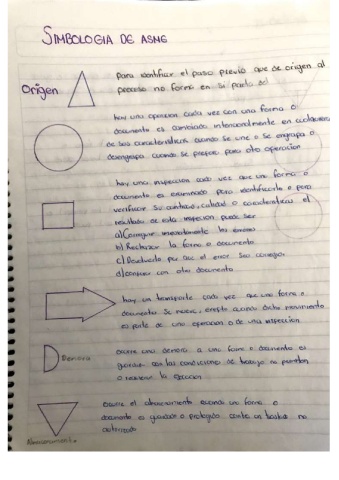 SIMBOLOGIA DE ASME
Para identificar el paso previo que da origen al
proceso no forma en si parte del
Origen
hay una operacion cada vez con una forma o
documento es cambiado intencionalmente en cualquiera
de sus caracteristicas cuando se une o se engrapa o
desengrapa cuando se prepara para otra operacion
hay una inspeccion cada vez que una forma o
documento es examinado para identificarlo o para
verificar su cantidad, calidad o caracteristicas el
resultado de esta inspeccion puede ser
a) Corregir los errores
b) Rechazar la forma o documento
c) Devolverlo por que el error sea corregir
d) con otro documento
hay un transporte cada vez que una forma o
documento se mueve, excepto cuando dicho movimiento
es parte de una operacion o de una inspeccion
Demora
Ocurre una demora a una forma o documento es
las condiciones de trabajo no permiten
o la ejecucion
Ocurre el almacenamiento cuando una forma o
documento es guardado o protegido contra un traslado no
autorizado
Almacenamiento